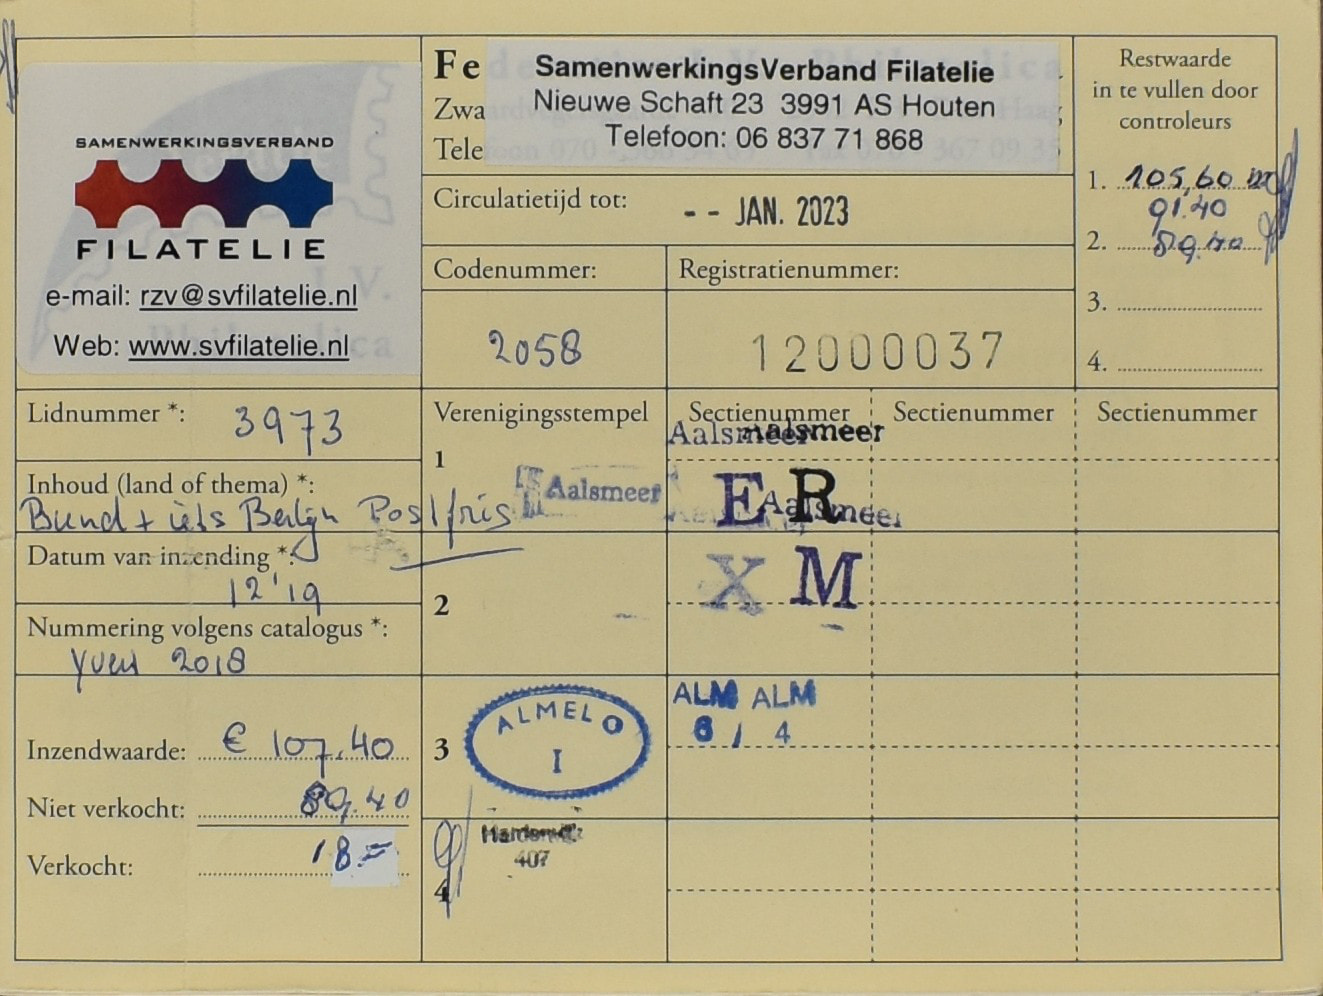 SAMENWERKINGSVERBAND
FILATELIE
e-mail: rzv@svfilatelie.nl
Web: www.svfilatelie.nl
Fe
Zwa
Tele
SamenwerkingsVerband Filatelie
Nieuwe Schaft 23 3991 AS Houten
Telefoon: 06 837 71 868
Circulatietijd tot:
-- JAN. 2023
Codenummer:
2058
Registratienummer:
12000037
Restwaarde
in te vullen door
controleurs
1. 105,60
91.40
2. 89.40
3.
4.
Lidnummer *:
3973
Inhoud (land of thema) *:
Bund + iets Berlijn Postfris
Datum van inzending *:
12'19
Nummering volgens catalogus *:
Yvert 2018
Inzendwaarde: € 107.40
Niet verkocht: 89.40
Verkocht: 18.=
Verenigingsstempel
Sectienummer
Sectienummer
Sectienummer
1
Aalsmeer
Aalsmeer
Aalsmeer
E R
Aalsmeer
2
X M
3
ALMELO
I
ALM ALM
8 / 4
4
407